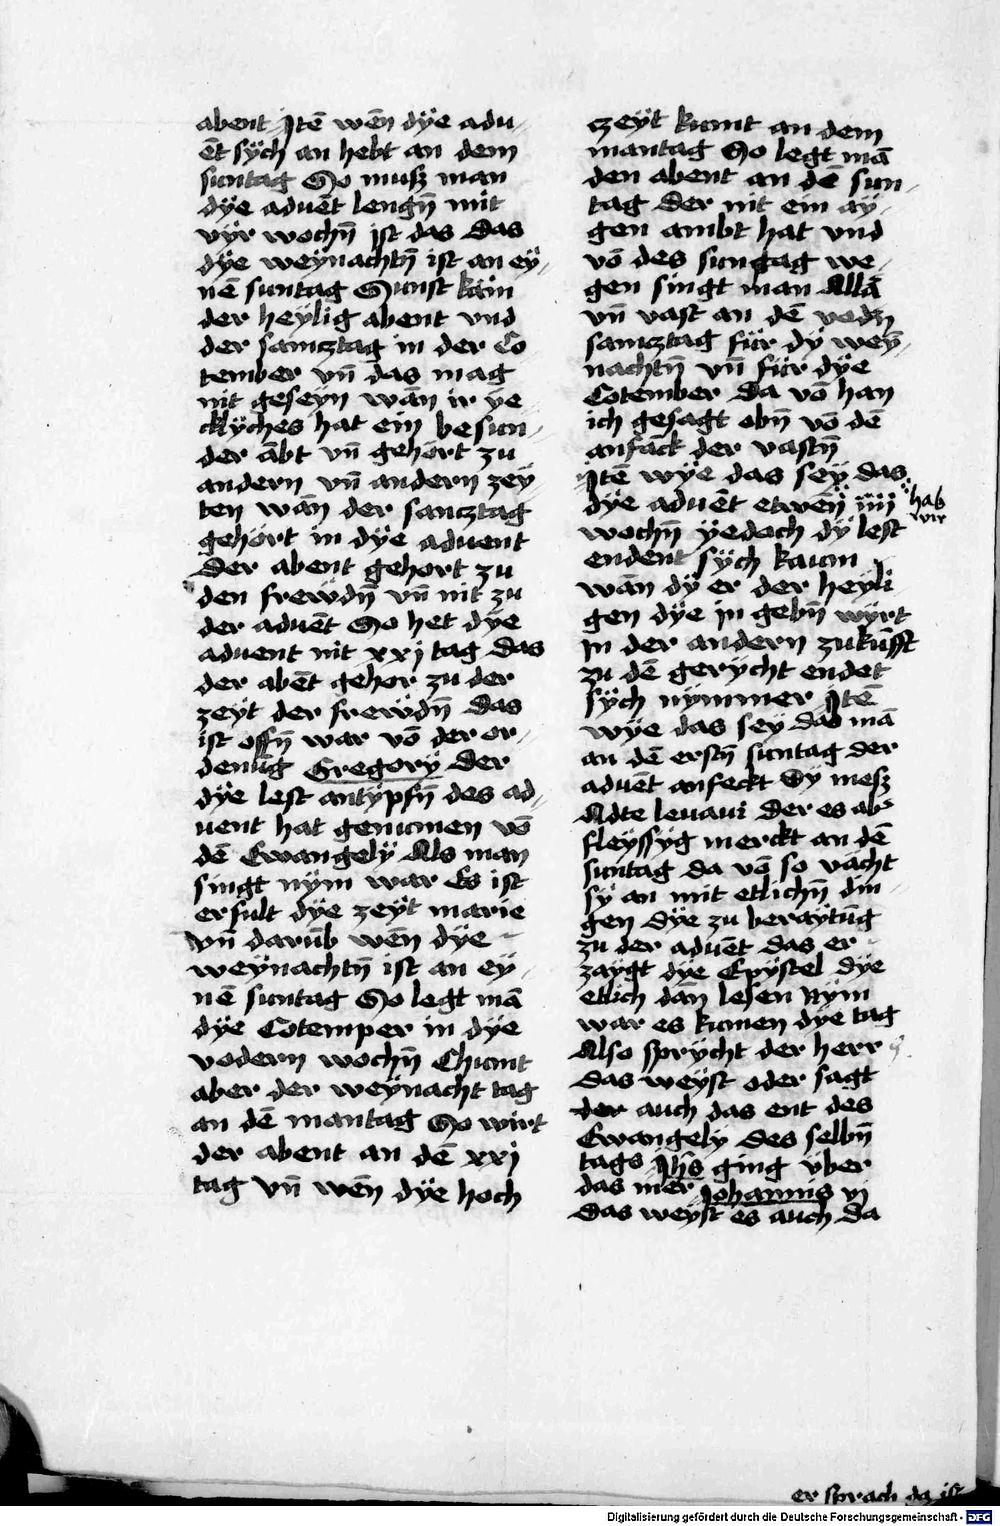 abent Itē wēn dÿe adu-
ēt sÿch an hebt an dem
suntag So musz man
dÿe aduēt lengn̄ mit
vÿr wochn̄ ist das das
dÿe weÿnachtn̄ ist an eÿ-
nē suntag Sunst käm
der heÿlig abent vnd
der samcztag in der Co
tember vn̄ das mag
nit geseÿn wān ir ÿe
cklÿches hat ein besun-
der ābt vn̄ gehört zu
andern vn̄ andern zeÿ
ten wān der samcztag
gehört in dÿe aduent
Der abent gehort zu
den frewdn̄ vn̄ nit zu
der aduēt So het dÿe
aduent nit xxj tag das
der abēt gehor zu der
zeÿt der frewdn̄ Das
ist offn̄ war vō der or-
denūg Gregorÿ Der
dÿe lest antÿpfn̄ des ad-
uent hat genumen vō
dē Ewangelÿ Als man
singt nÿm war Es ist
erfult dÿe zeÿt marie
vn̄ darūb wēn dÿe
weÿnachtn̄ ist an eÿ-
nē suntag So legt mā
dÿe Cotemper in dÿe
vodern wochn̄ Chumt
aber der weÿnacht tag
an dē mantag So wirt
der abent an dē xxj
tag vn̄ wēn dÿe hoch
zeÿt kumt an dem
mantag So legt mā
den abent an dē sun-
tag der nit ein aÿ-
gen ambt hat vnd
vō des suntag we-
gen singt man Allā
vn̄ vast an dē
samcztag für dÿ weÿ-
nachtn̄ vn̄ für dÿe
Cotember Da vō han
ich gesagt obn̄ vō dē
anfāck der vastn̄
Itē wÿe das seÿ das
dÿe aduēt etwēn iiii
hab
wir
wochn̄ ÿedoch dÿ lest
endent sÿch kaum
wān dÿ er der heÿli
gen dÿe in gebn̄ wÿrt
in der andern zukūfft
zu dē gerÿcht endet
sÿch nÿmmer Itē
wÿe das seÿ das mā
an dē erstn̄ suntag der
aduēt anfeckt Dÿ mesz
Adte leuaui Der es ab
fleÿssÿg merckt an dē
suntag da vō so vācht
sÿ an mit etlichn̄ din-
gen dÿe zu beraÿtūg
zu der aduēt das er
zaÿgt dÿe Epÿstel dÿe
etlich dān lesen Nÿm
war es kumen dÿe tag
Also sprÿcht der herr
Das weÿst oder sagt
der auch das ent des
Ewangelÿ Des selbn̄
tags Jhs ging über
das mer Johannis vj
Das weÿst es auch da
er sprach da ist
Digitalisierung gefördert durch die Deutsche Forschungsgemeinschaft - DFG